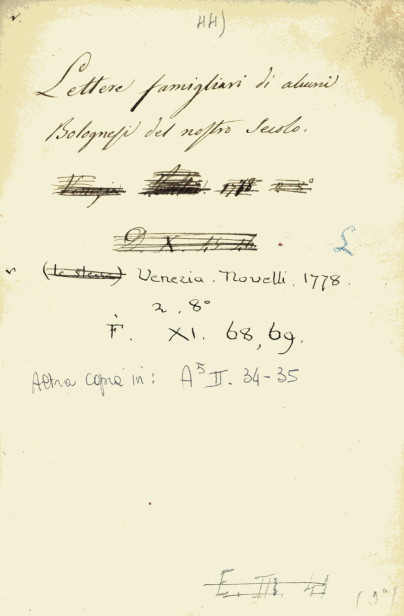 44)
Lettere famigliari di alcuni
Bolognesi del nostro Secolo.
Venezia 1778 8°
D X.
L
(Le stesse) Venezia. Novelli. 1778.
2. 8°
F. XI. 68, 69.
Altra copia in: A5 II. 34-35
E. III. 41
(9°)